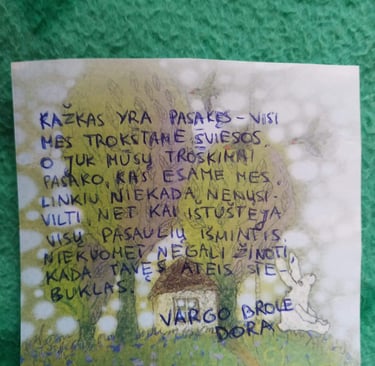 KAŽKAS YRA PASAKĘS – VISI
MES TROKŠTAME ŠVIESOS.
O JUK MŪSŲ TROŠKIMAI
PASAKO, KAS ESAME MES.
LINKIU NIEKADA NENUSI-
VILTI NET KAI IŠTUŠTĖJA
VISŲ PASAULIŲ IŠMINTIS.
NIEKUOMET NEGALI ŽINOTI
KADA TAVĘS ATEIS STE-
BUKLAS.
VARGO BROLĖ
DORA